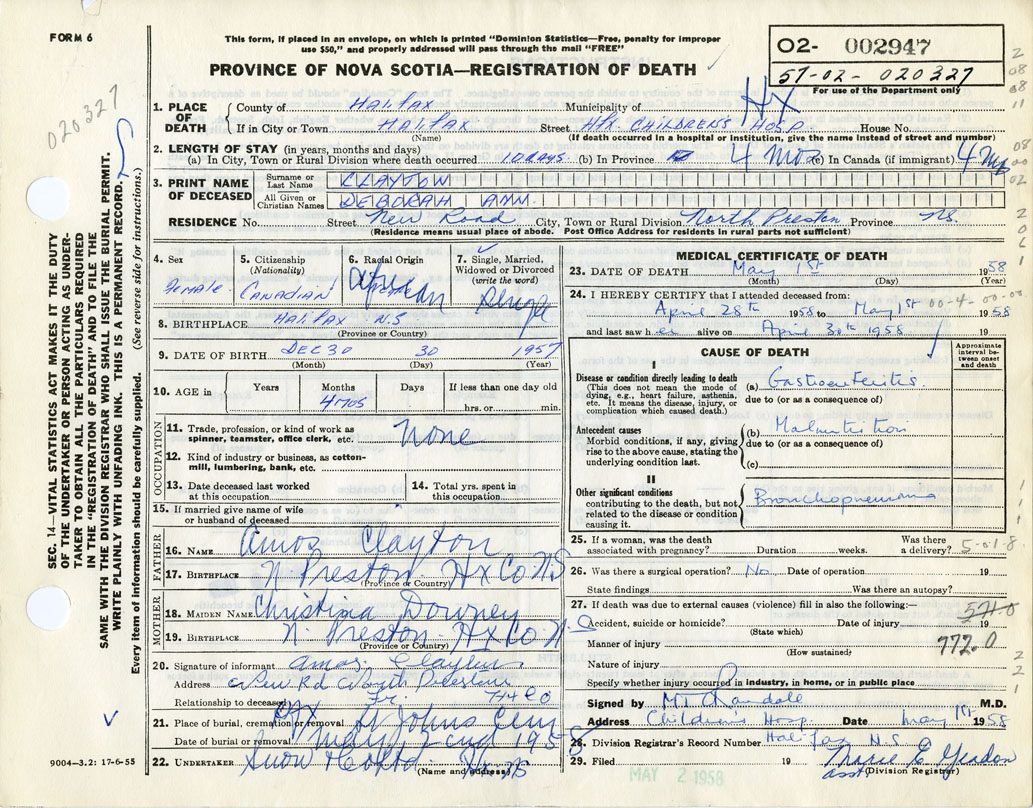 FORM 6
This form, if placed in an envelope, on which is printed "Dominion Statistics—Free, penalty for improper
use $50," and properly addressed will pass through the mail "FREE"
PROVINCE OF NOVA SCOTIA—REGISTRATION OF DEATH
02- 002947
57-02-020327
For use of the Department only
020327
Hx
1. PLACE OF DEATH
County of Halifax Municipality of
If in City or Town HALIFAX Street Hfx. CHILDREN'S HOSP. House No.
(Name) (If death occurred in a hospital or institution, give the name instead of street and number)
2. LENGTH OF STAY (in years, months and days)
(a) In City, Town or Rural Division where death occurred 10 DAYS. (b) In Province 4 Mos (c) In Canada (if immigrant) 4 Mos
3. PRINT NAME OF DECEASED
Surname or Last Name CLAYTON
All Given or Christian Names DEBORAH ANN.
RESIDENCE No. Street New Road City, Town or Rural Division North Preston Province NS.
(Residence means usual place of abode. Post Office Address for residents in rural parts not sufficient)
4. Sex Female
5. Citizenship (Nationality) Canadian
6. Racial Origin African
7. Single, Married, Widowed or Divorced (write the word) Single
8. BIRTHPLACE Halifax N.S
(Province or Country)
9. DATE OF BIRTH DEC 30 30 1957
(Month) (Day) (Year)
10. AGE in Years Months 4 mos Days If less than one day old hrs. or min.
OCCUPATION
11. Trade, profession, or kind of work as spinner, teamster, office clerk, etc. none
12. Kind of industry or business, as cotton-mill, lumbering, bank, etc.
13. Date deceased last worked at this occupation
14. Total yrs. spent in this occupation
15. If married give name of wife or husband of deceased
FATHER
16. NAME Amos Clayton
17. BIRTHPLACE N Preston Hx Co NS
(Province or Country)
MOTHER
18. MAIDEN NAME Christina Downey
19. BIRTHPLACE N. Preston Hx Co N S
(Province or Country)
20. Signature of informant Amos Clayton
Address New Rd North Preston
Relationship to deceased Hfx Co
21. Place of burial, cremation or removal St Johns Cem
Date of burial or removal May 2nd 1958
22. UNDERTAKER Snow Hx NS
(Name and address)
9004—3.2: 17-6-55
SEC. 14—VITAL STATISTICS ACT MAKES IT THE DUTY
OF THE UNDERTAKER OR PERSON ACTING AS UNDER-
TAKER TO OBTAIN ALL THE PARTICULARS REQUIRED
IN THE "REGISTRATION OF DEATH" AND TO FILE THE
SAME WITH THE DIVISION REGISTRAR WHO SHALL ISSUE THE BURIAL PERMIT.
WRITE PLAINLY WITH UNFADING INK. THIS IS A PERMANENT RECORD.
Every item of information should be carefully supplied. (See reverse side for instructions.)
MEDICAL CERTIFICATE OF DEATH
23. DATE OF DEATH May 1st 1958
(Month) (Day) (Year)
24. I HEREBY CERTIFY that I attended deceased from:
April 28th 1958 to May 1st 1958
00-4-00-00
and last saw her alive on April 30th 1958 19
CAUSE OF DEATH
Approximate interval between onset and death
I
Disease or condition directly leading to death
(This does not mean the mode of dying, e.g., heart failure, asthenia, etc. It means the disease, injury, or complication which caused death.)
(a) Gastroenteritis.
due to (or as a consequence of)
Antecedent causes
Morbid conditions, if any, giving rise to the above cause, stating the underlying condition last.
(b) Malnutrition
due to (or as a consequence of)
(c)
II
Other significant conditions
contributing to the death, but not related to the disease or condition causing it.
Bronchopneumonia
25. If a woman, was the death associated with pregnancy? Duration weeks. Was there a delivery?
5-01-8
26. Was there a surgical operation? No. Date of operation 19
State findings Was there an autopsy?
27. If death was due to external causes (violence) fill in also the following:—
Accident, suicide or homicide? Date of injury 19
(State which)
571.0
772.0
Manner of injury
(How sustained)
Nature of injury
Specify whether injury occurred in industry, in home, or in public place
Signed by Randall M.D.
Address Children's Hosp. Date May 1st 1958
28. Division Registrar's Record Number Halifax N.S
29. Filed 19
MAY 2 1958
asst (Division Registrar)